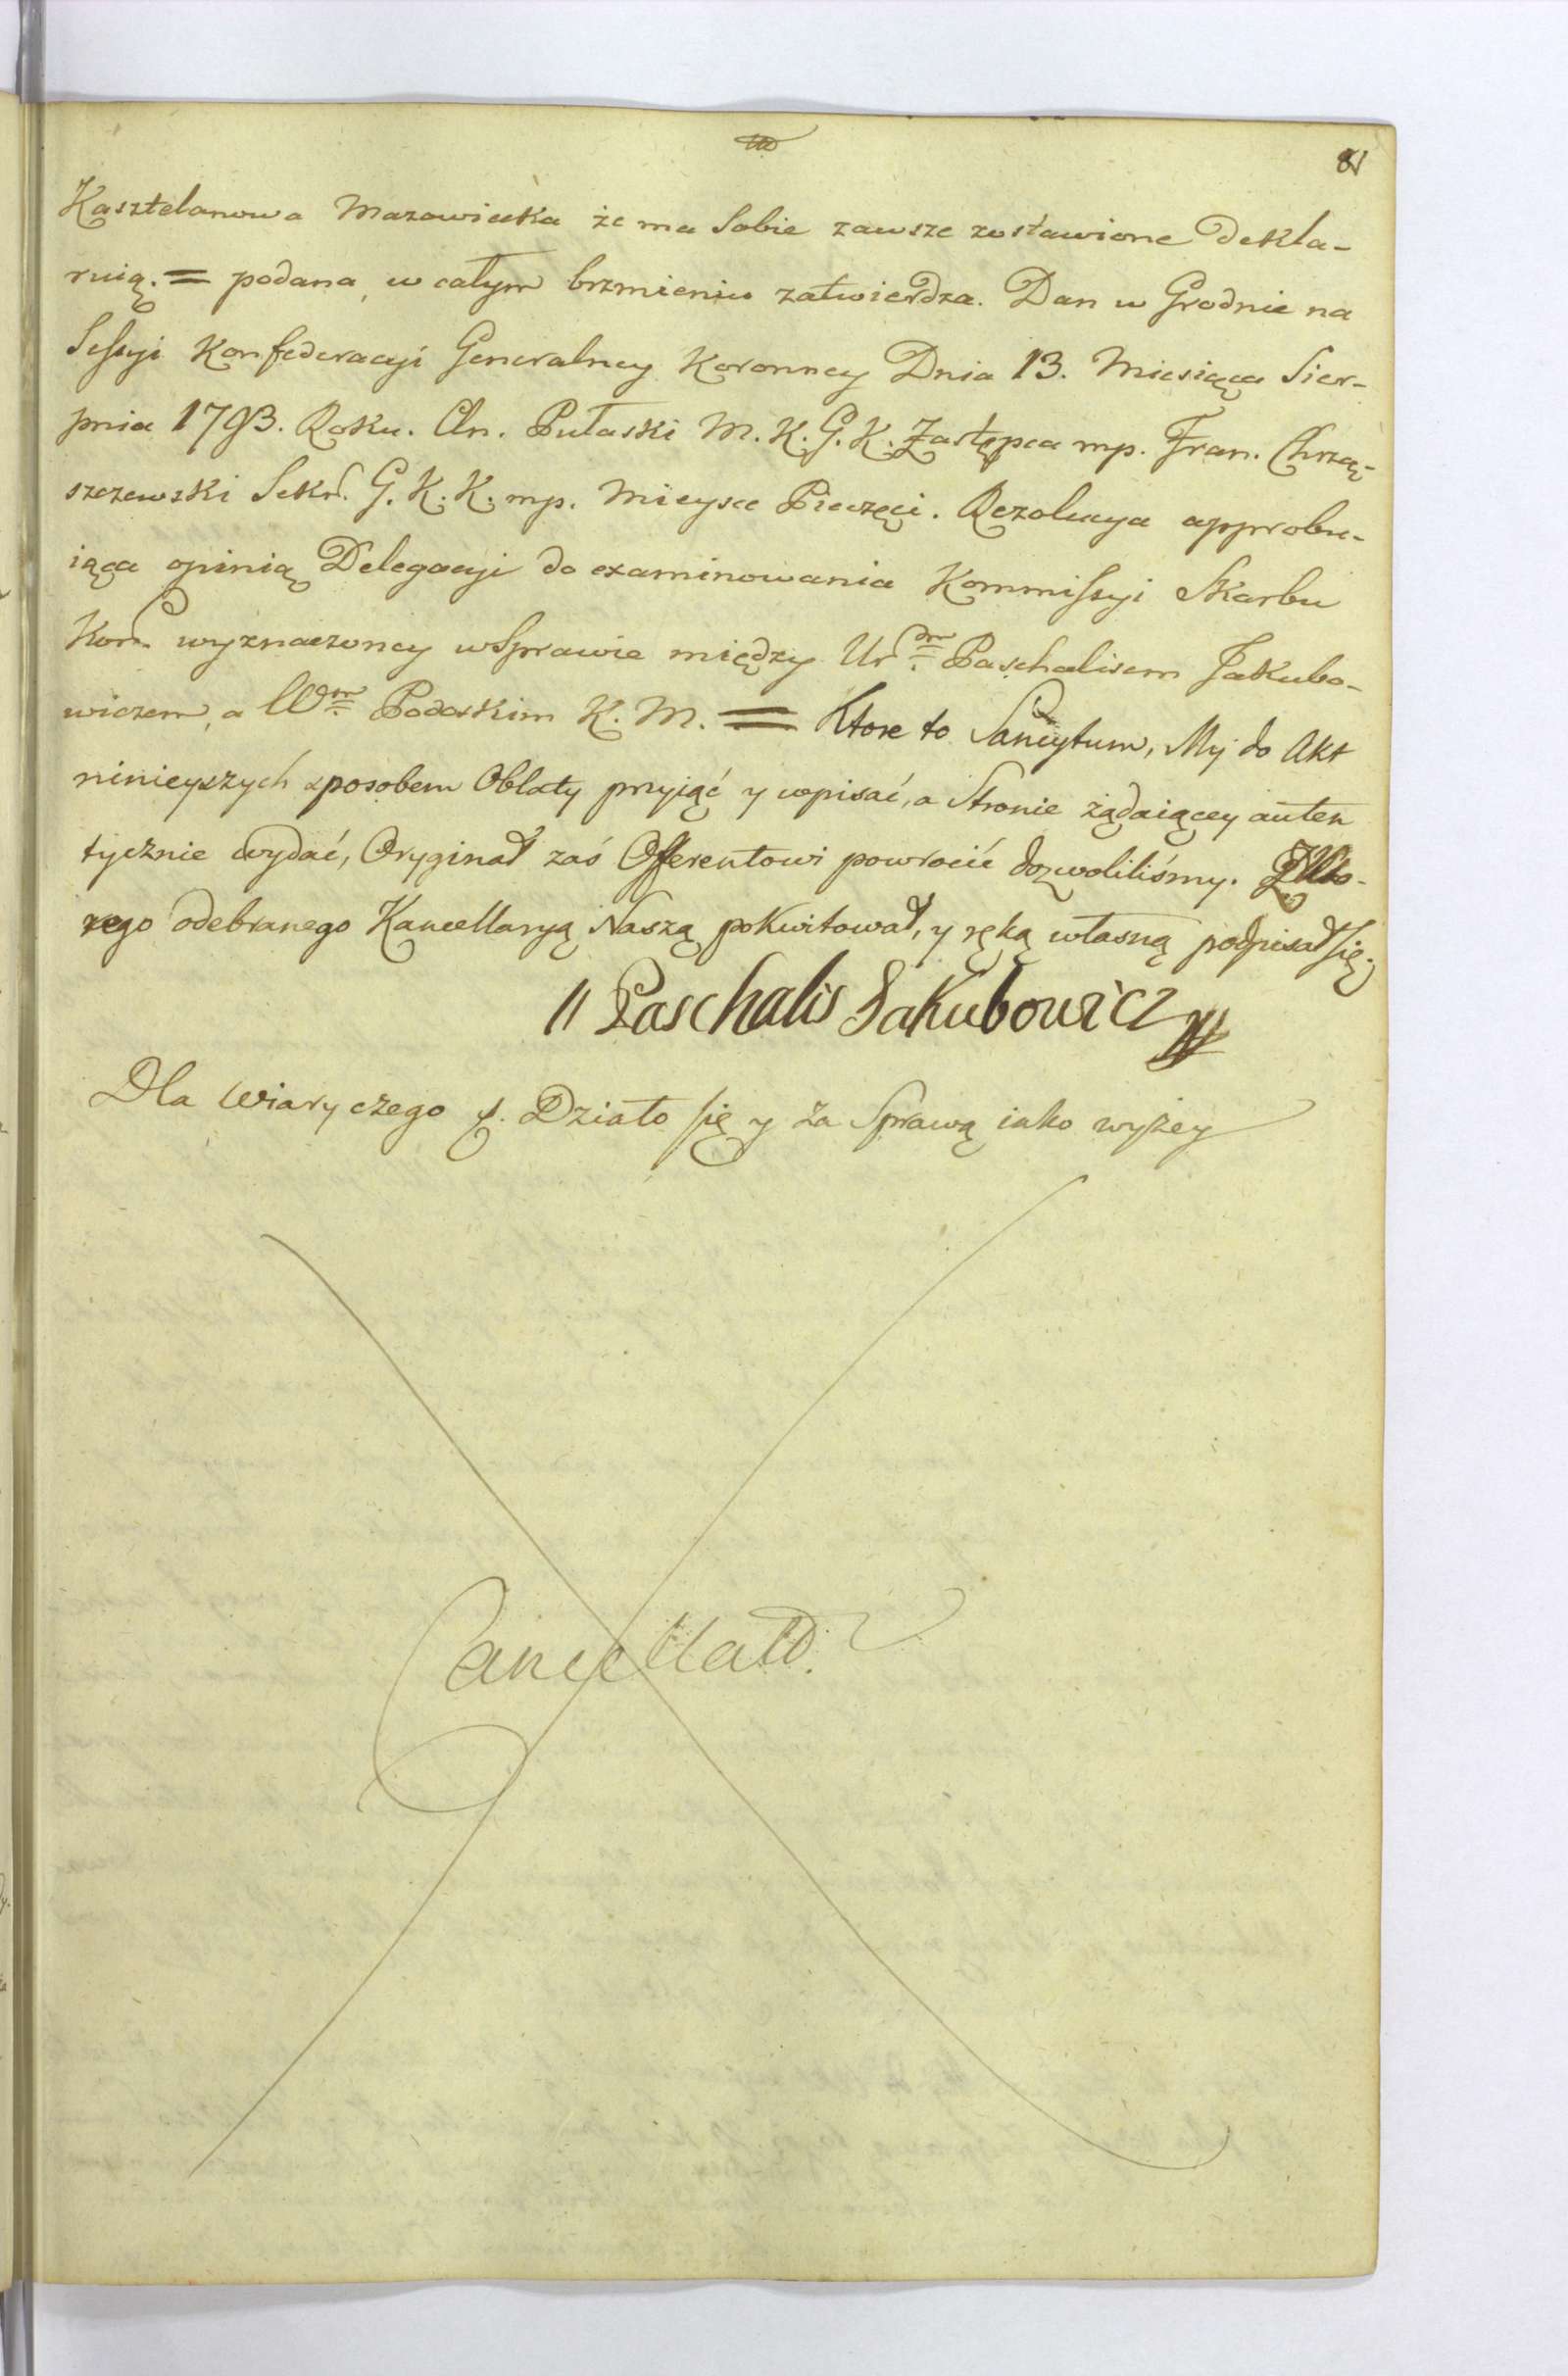 81
Kasztelanowa Mazowiecka że ma Sobie zawsze zostawione dekla-
ruią. = podana, w całym brzmieniu zatwierdza. Dan w Grodnie na
Sessyi Konfederacyi Generalney Koronney Dnia 13. Miesiąca Sier-
pnia 1793. Roku. An. Pułaski M. K. G. K. Zastępca mp. Fran. Chrzą-
szczewski Sekr. G. K. K. mp. Mieysce Pieczęci. Rezolucya approbu-
iąca opinią Delegacyi do examinowania Kommissyi Skarbu
Kor. wyznaczoney w Sprawie między Ur^m Paschalisem Jakubo-
wiczem, a W^m Podoskim K. M. = Ktore to Sancytum, My do Akt
ninieyszych sposobem Oblaty przyiąć y wpisać, a Stronie żądaiącey auten
tycznie wydać, Oryginał zaś Offerentowi powrocić dozwoliliśmy. Z Kto-
rego odebranego Kancellaryą Naszą pokwitował, y ręką własną podpisał się;
// Paschalis Jakubowicz //
Dla Wiary czego &. Działo się y za Sprawą iako wyżey
Cancellatd.